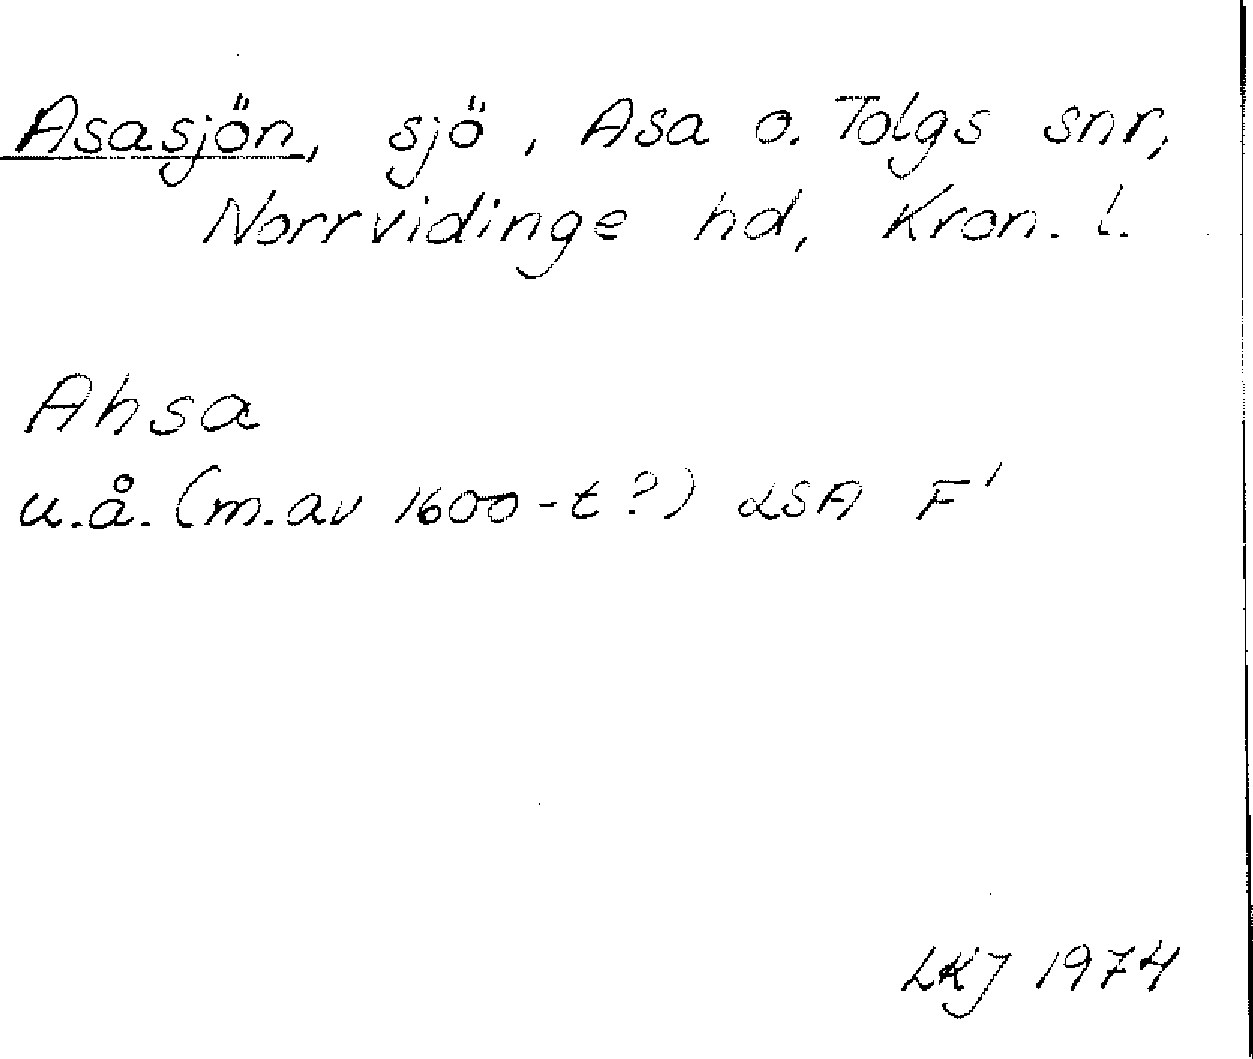 Asasjön, sjö, Asa o. Tolgs snr,
Norrvidinge hd, Kron. l.
Ahsa
u.å. (m. av 1600-t?) LSA F¹
LKJ 1974